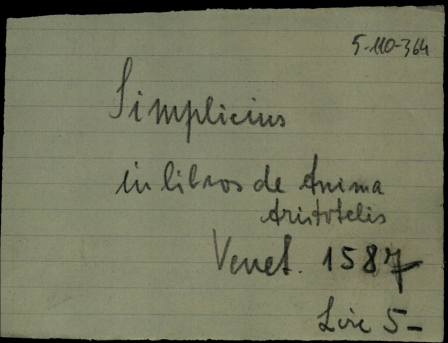 5-110-364
Simplicius
in libros de Anima
Aristotelis
Venet. 1587
Lire 5-